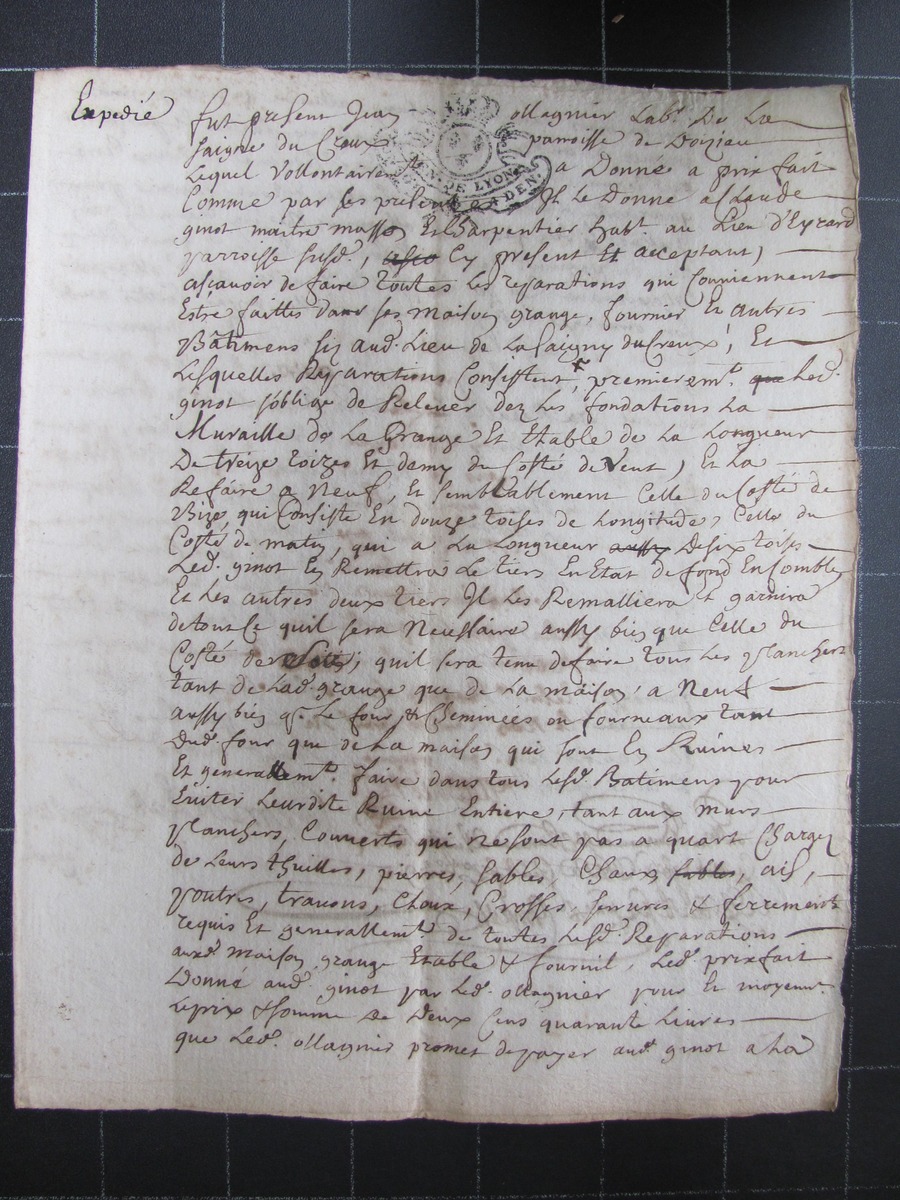 Expedié
fut present Jean ollagnier Lab.r De La
saigne du Creux parroisse de Doizieu
Lequel Vollontairem.t a Donné a prix fait
Comme par ses presentes Il Le Donne a Claude
ginot maitre masson Et Charpentier habt. au Lieu d'Eyrard
parroisse susd., Ey present Et acceptant,
ascavoir de faire toutes les reparations qui Conviennent
Estre faittes dans ses maison grange, fournier Et autres
Bâtimens sis aud. Lieu de La Saigne du Creux, Et
Lesquelles Reparations Consistent, premierem.t. que Led.
ginot s'oblige de Relever dez Les fondations La
Muraille de La Grange Et Etable de La Longueur
De treize toizes Et demy du Costé de Vent, Et La
Refaire a Neuf, Et semblablement Celle du Costé de
Bize, qui Consiste En douze toises de Longitude, Celle du
Costé de matin, qui a La Longueur aussy De six toises
Led. ginot Ey Remettra Le tiers En Etat de fond En Comble,
Et Les autres deux tiers Il Les Remalliera Et garnira
de tout Ce quil sera Necessaire aussy bien que Celle du
Costé de soir, quil sera tenu de faire tous Les planchers
tant de Lad. grange que de La maison, a Neuf
aussy bien q.e Le four & Cheminées ou fourneaux tant
dud. four que de La maison qui sont En Ruines
Et generallem.t. faire dans tous Lesd. Batimens pour
Eviter Leurdite Ruine Entiere, tant aux murs
planchers, Couverts qui ne sont pas a quart Chargez
de Leurs thuilles, pierres, sables, Chaux sables, ais,
poutres, travons, Choux, Crosses, serrures & ferrements
requis Et generallem.t. de toutes Lesd. Reparations
auxd. maison grange Etable & fournil, Led. prixfait
Donné aud. ginot par Led. ollagnier pour Et moyenn.t
Le prix & somme De Deux Cens quarante Livres
que Led. ollagnier promet de payer aud. ginot a La
GEN. DE LYON
DEN.